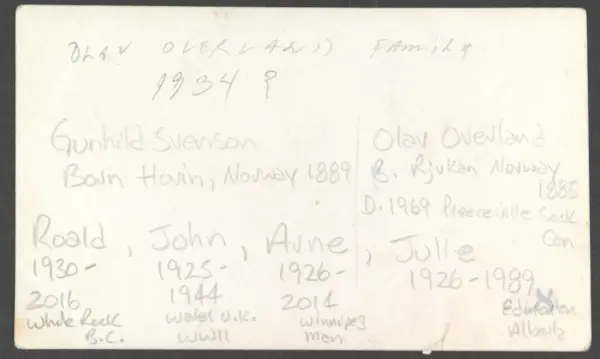 OLAV OVERLAND FAMILY
1934 ?
Gunhild Svenson
Born Hovin, Norway 1889
Olav Overland
B. Rjukan Norway
1885
D. 1969 Preeceville Sask
Can
Roald, John, Arne, Julie
1930-
2016
White Rock
B.C.
1925-
1944
Wales U.K.
WWII
1926-
2014
Winnipeg
Man
1926-1989
Edmonton
Alberta